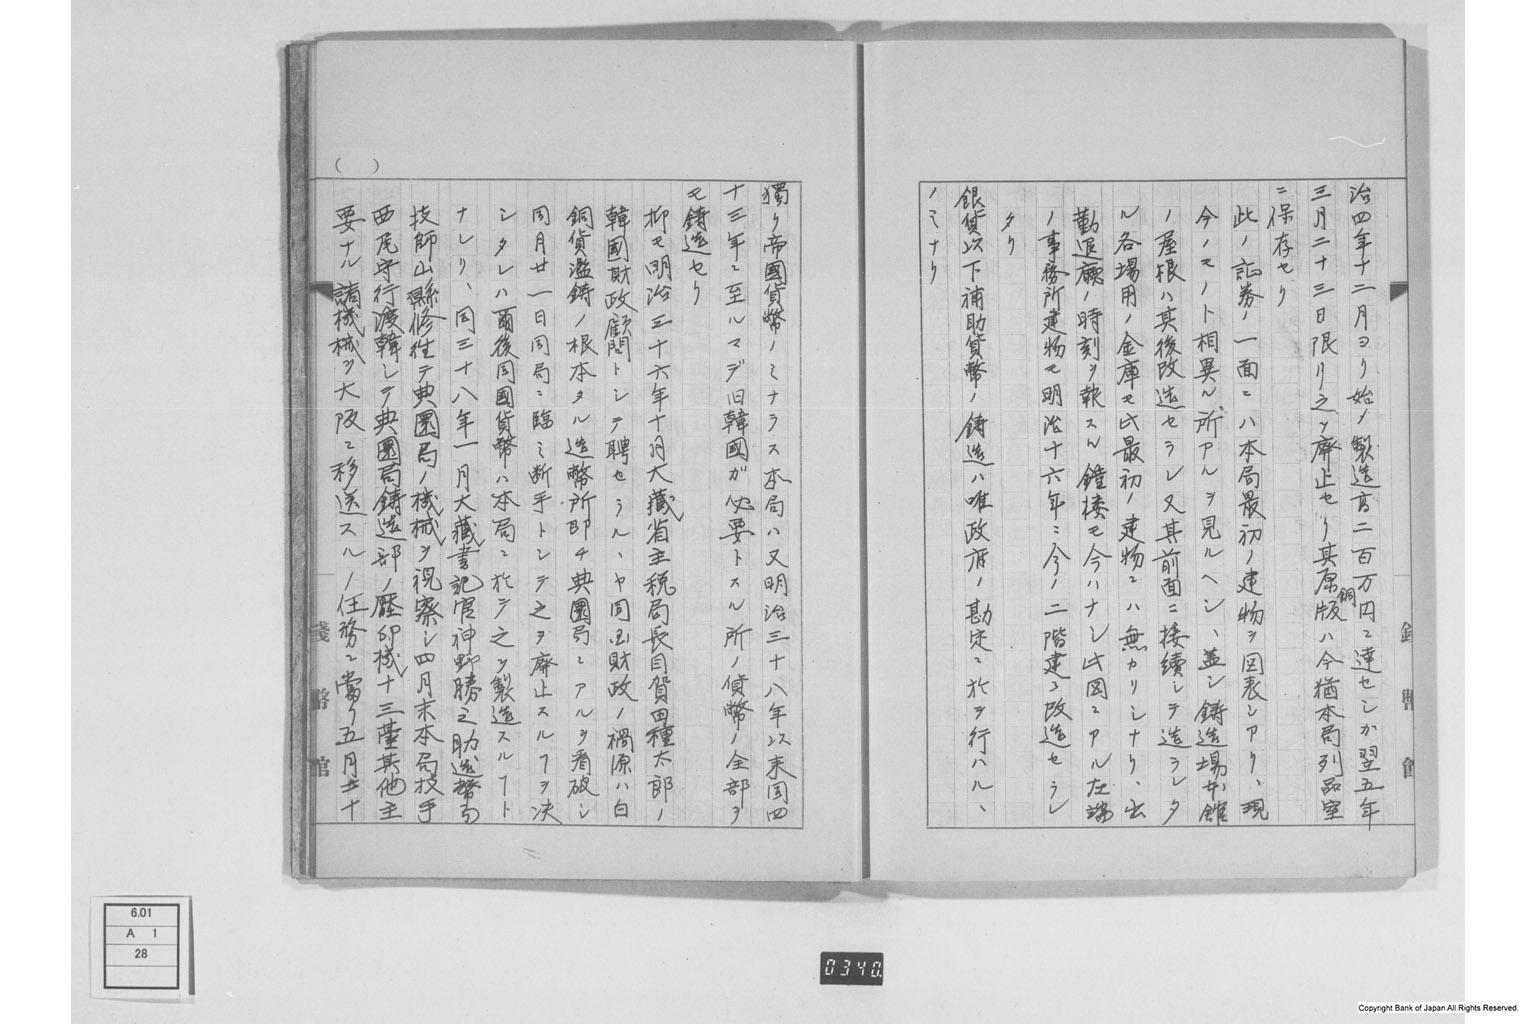 治四年十二月ヨリ始メ製造高二百万円ニ達セシカ翌五年
三月二十三日限リ之ヲ廃止セリ其原銅版ハ今猶本局列品室
ニ保存セリ
此ノ証券ノ一面ニハ本局最初ノ建物ヲ図表シアリ、現
今ノモノト相異ル所アルヲ見ルヘシ、蓋シ鋳造場本館
ノ屋根ハ其後改造セラレ又其前面ニ接続シテ造ラレタ
ル各場用ノ金庫モ此最初ノ建物ニハ無カリシナリ、出
勤退廰ノ時刻ヲ報スル鐘楼モ今ハナシ此図ニアル左端
ノ事務所建物モ明治十六年ニ今ノ二階建ニ改造セラレ
タリ
銀貨以下補助貨幣ノ鋳造ハ唯政府ノ勘定ニ於ヲ行ハル、
ノミナリ
獨リ帝國貨幣ノミナラス本局ハ又明治三十八年以来同四
十三年ニ至ルマデ旧韓國ガ必要トスル所ノ貨幣ノ全部ヲ
モ鋳造セリ
抑モ明治三十六年十月大藏省主税局長目賀田種太郎ノ
韓國財政顧問トシテ聘セラル、ヤ同国財政ノ禍源ハ白
銅貨濫鋳ノ根本タル造幣所即チ典圜局ニアルヲ看破シ
同月廿一日同局ニ臨ミ断手トシテ之ヲ廃止スルフヲ決
シタレハ爾後同國貨幣ハ本局ニ於テ之ヲ製造スルフト
ナレリ、同三十八年一月大藏書記官神野勝之助造幣局
技師山縣修往テ典圜局ノ機械ヲ視察シ四月末本局技手
西尾守行渡韓シテ典圜局鋳造部ノ壓印機十三臺其他主
要ナル諸機械ヲ大阪ニ移送スルノ任務ニ當リ五月
( )
錢幣館
6.01
A 1
28
0340.
Copyright Bank of Japan All Rights Reserved.